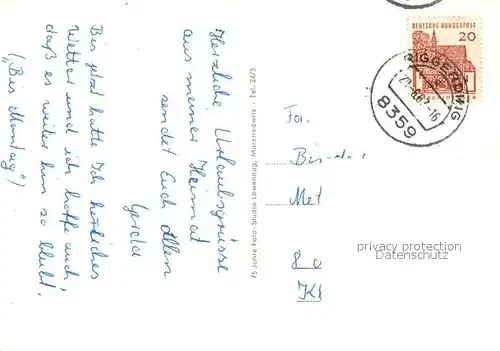 Herzliche Urlaubsgrüsse
aus meiner Heimat
sendet Euch Allen
Gerda
Bis jetzt hatte ich herrliches
Wetter und ich hoffe auch
daß es weiter hin so bleibt.
("Bis Montag")
75 Jahre Foto-Studio Löwenhag, Marktredwitz · Tel. 2475
DEUTSCHE BUNDESPOST
20
8359
Fa.
Met
8
Kl
privacy protection
Datenschutz